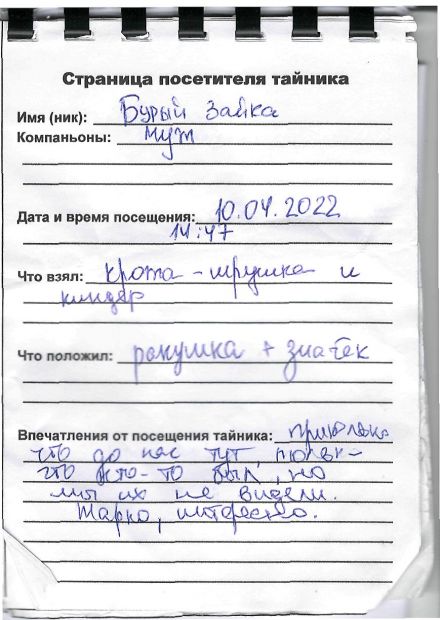 Страница посетителя тайника
Имя (ник): Бурый Зайка
Компаньоны: муж
Дата и время посещения: 10.04.2022
14:47
Что взял: крота-игрушка и
киндер
Что положил: ракушка + значек
Впечатления от посещения тайника: прикольно
что до нас тут,
что кто-то был, но
мы их не видели.
Жарко, интересно.